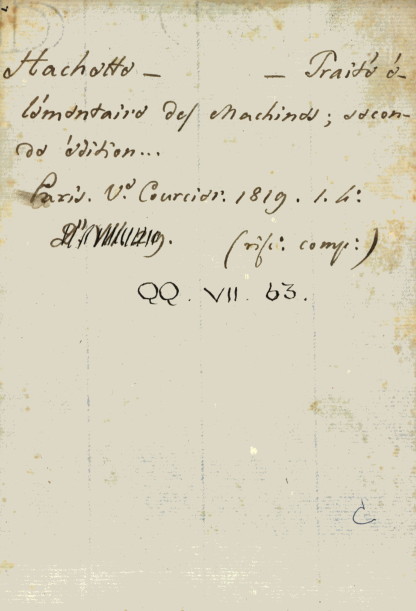 Hachette — — Traité é-
lémentaire des Machines; secon-
de édition...
Paris. Vᵉ Courcier. 1819. 1. 4º:
(rifᶜ: comp:)
QQ. VII. 63.
C